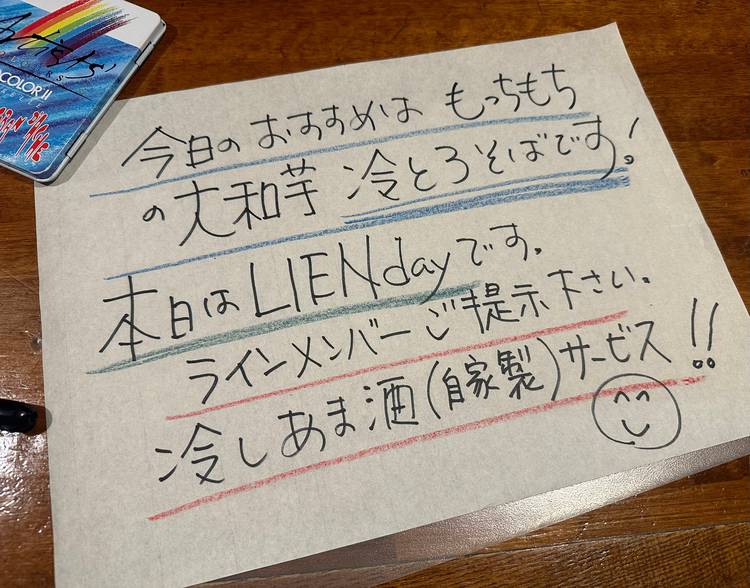 Artists'
COLORS
COLOR II
今日の おすすめは もっちもち
の大和芋 冷とろそばです!
本日はLIENdayです。
ラインメンバーご提示下さい。
冷しあま酒(自家製)サービス!!